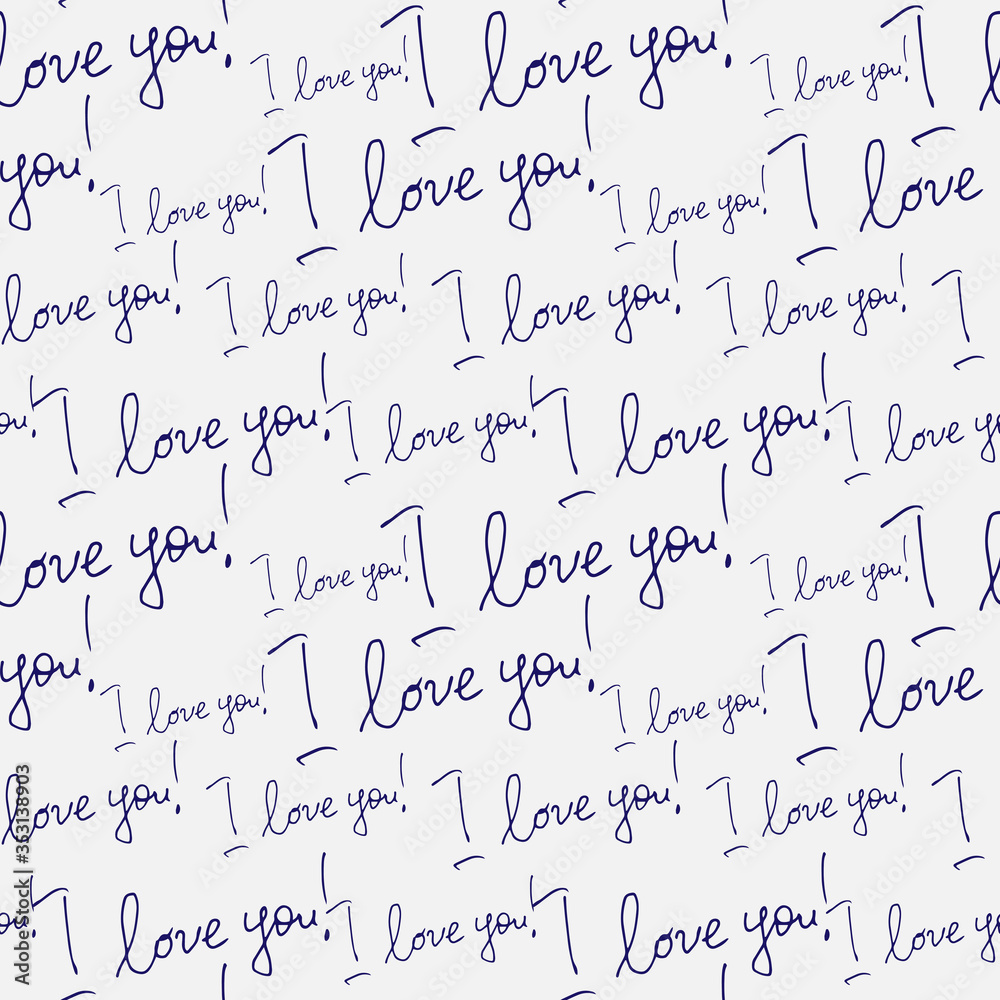 love you! I love you! I love you! I love you! I l
you! I love you! I love you! I love you! I love
love you! I love you! I love you! I love you! I
you! I love you! I love you! I love you! I love you
love you! I love you! I love you! I love you! I l
you! I love you! I love you! I love you! I love
love you! I love you! I love you! I love you! I
you! I love you! I love you! I love you! I love you
Adobe Stock | #363138903